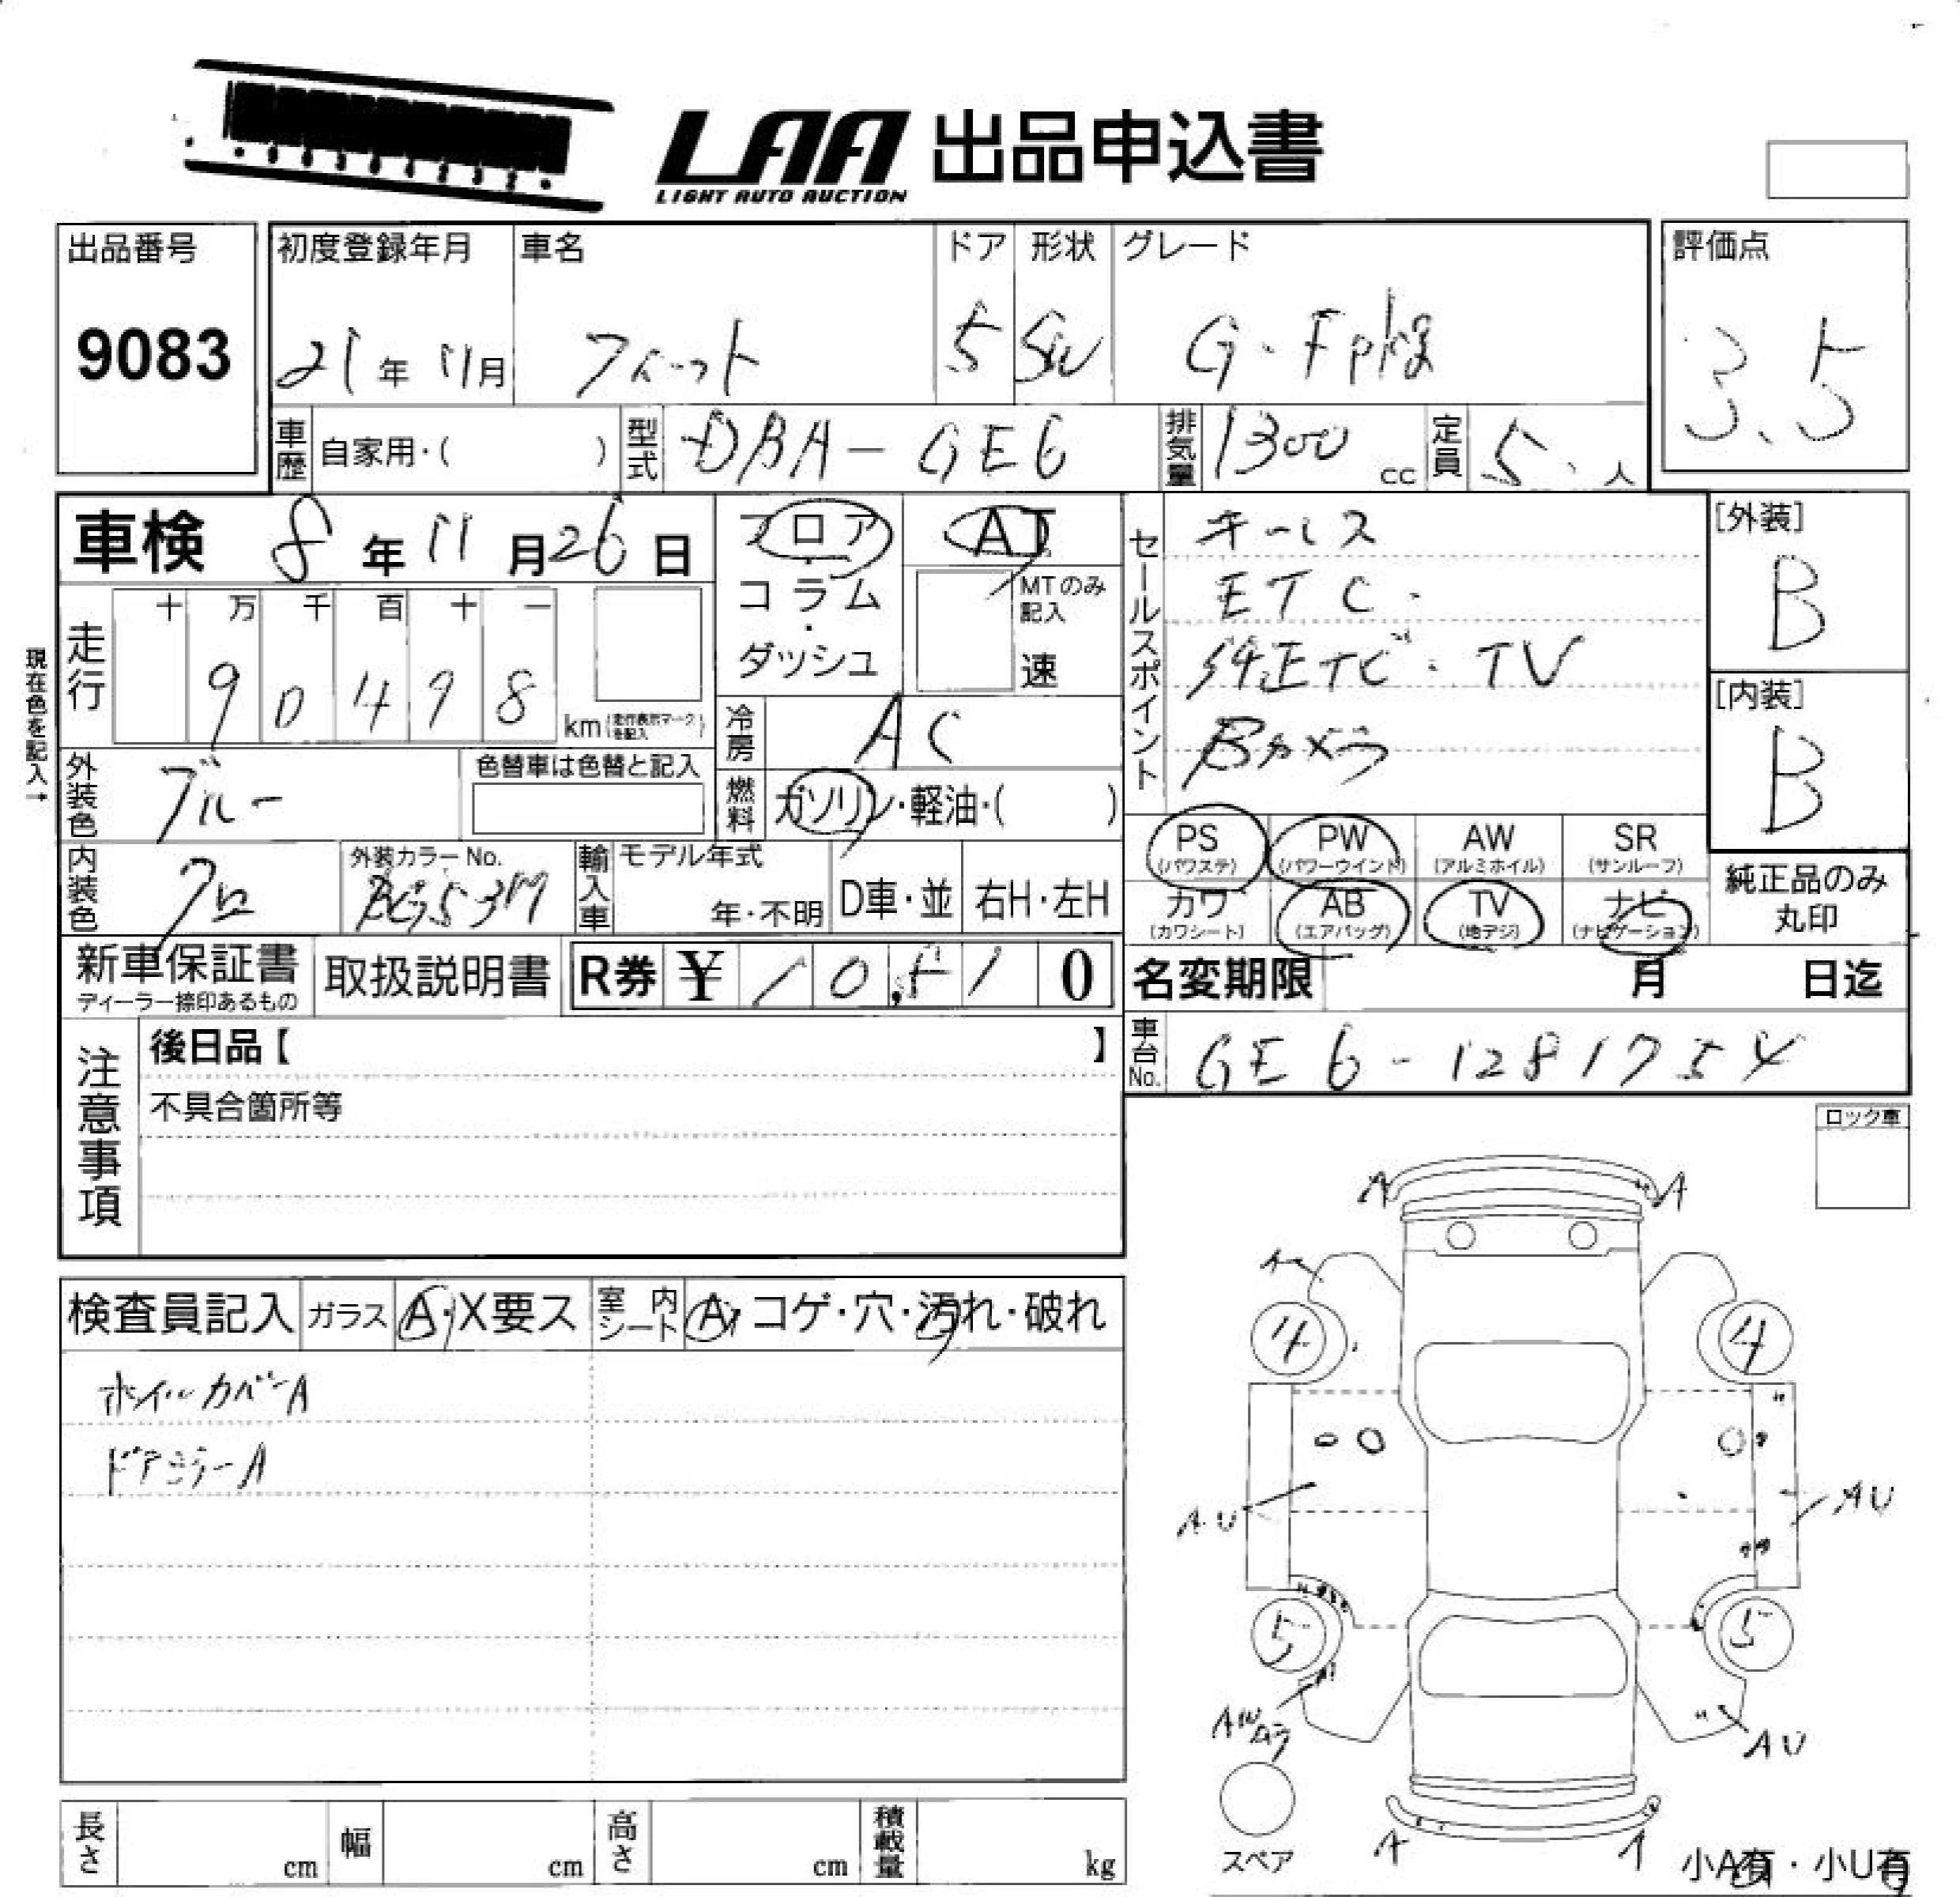 LAA 出品申込書
LIGHT AUTO AUCTION
出品番号
9083
初度登録年月
21年 11月
車名
フィット
ドア
5
形状
SW
グレード
G・Fpkg
評価点
3.5
車歴 自家用・( )
型式 DBA-GE6
排気量 1300 cc
定員 5 人
車検 8年11月26日
フロア・コラム・ダッシュ
AT
MTのみ記入
速
現在色を記入→
走行
十 万 千 百 十 一
9 0 4 9 8
km (走行表示マークを記入)
冷房 AC
外装色 ブルー
色替車は色替と記入
燃料 ガソリン・軽油・( )
内装色 クロ
外装カラーNo.
BG53M
輸入車 モデル年式
年・不明
D車・並
右H・左H
セールスポイント
キーレス
ETC.
純正ナビ・TV
Bカメラ
[外装]
B
[内装]
B
PS (パワステ)
PW (パワーウインド)
AW (アルミホイル)
SR (サンルーフ)
カワ (カワシート)
AB (エアバッグ)
TV (地デジ)
ナビ (ナビゲーション)
純正品のみ丸印
新車保証書
ディーラー捺印あるもの
取扱説明書
R券 ¥ 10,510
名変期限 月 日迄
車台No. GE6-1281754
注意事項
後日品【 】
不具合箇所等
ロック車
検査員記入
ガラス A・X要ス
室内シート A・コゲ・穴・汚れ・破れ
ホイルカバーA
ドアミラーA
A A
A
4 4
AU AU
5 5
AW
AU
A A
スペア
小A有・小U有
長さ cm
幅 cm
高さ cm
積載量 kg